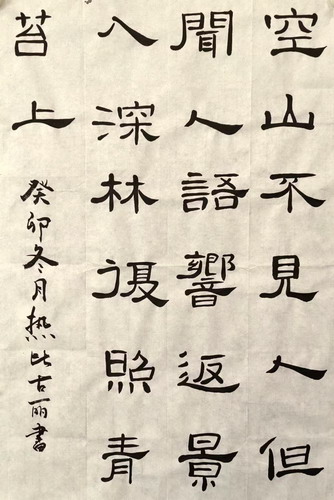 空山不見人但
聞人語響返景
入深林復照青
苔上
癸卯冬月热比古丽書